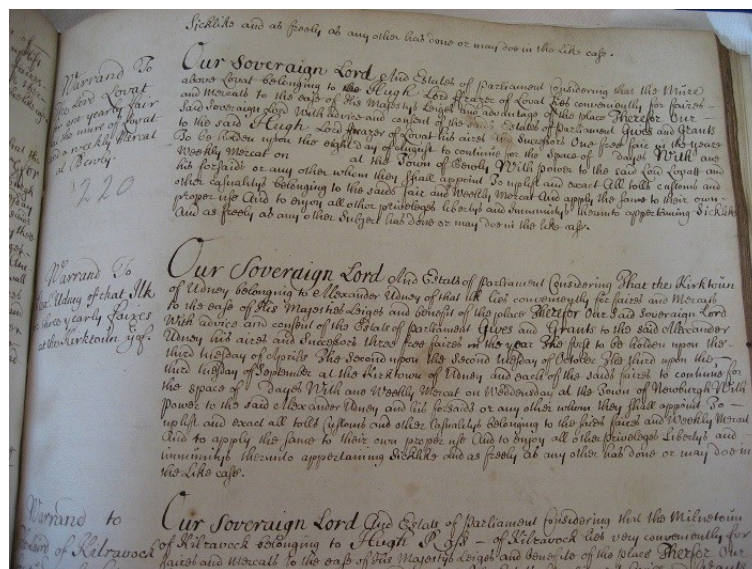 Sicklike and as freely as any other has done or may doe in the like case.
Warrand To
The Lord Lovat
for one yearly fair
at the mure of Lovat
and a weekly Mercat
at Bewly.
220
Our Soveraign Lord And Estates of Parliament Considering that the Mure
above Lovat belonging to Hugh Lord ffrazer of Lovat lies conveniently for faires
and mercats to the ease of His Majestys Leiges and advantage of the place Therfor Our
said Soveraign Lord With advice and consent of the saids Estates of Parliament Gives and Grants
to the said Hugh Lord ffrazer of Lovat his aires and Successors One free fair in the year
To be holden upon the eight day of August to continue for the space of dayes With ane
Weekly Mercat on at the Town of Bewly With power to the said Lord Lovatt and
his forsaids or any other whom they shall appoint To uplift and exact All tolls customs and
other casualitys belonging to the saids fair and Weekly Mercat And apply the same to their own
proper use And to enjoy all other priveleges libertys and Immunitys therinto appertaining Sicklike
And as freely as any other Subject has done or may doe in the like case.
Warrand To
Udney of that Ilk
for three yearly faires
at the Kirktoun yrof.
Our Soveraign Lord And Estats of Parliament Considering That the Kirktoun
of Udney belonging to Alexander Udney of that ilk lies conveniently for faires and Mercats
to the ease of His Majesties Leiges and benefit of the place Therfor Our said Soveraign Lord
With advice and consent of the Estats of Parliament Gives and Grants to the said Alexander
Udney his aires and Successors three free faires in the year The first to be holden upon the
third tuesday of Aprile The Second upon the Second tuesday of October The third upon the
third tuesday of September at the Kirktown of Udney and each of the saids faires to continue for
the space of dayes With ane Weekly Mercat on Weddensday at the Town of Newburgh With
power to the said Alexander Udney and his forsaids or any other whom they shall appoint To
uplift and exact all tolls Customs and other Casualitys belonging to the saids faires and Weekly Mercat
And to apply the same to their own proper use And to enjoy all other priveleges Libertys and
immunitys therinto appertaining Sicklike and as freely as any other has done or may doe in
the Like case.
Warrand to
Laird of Kilravock
Our Soveraign Lord And Estats of Parliament Considering that the Milnetoun
of Kilravock belonging to Hugh Ross of Kilravock lies very conveniently for
faires and Mercats to the ease of His Majestys Leiges and benefite of the place Therfor Our